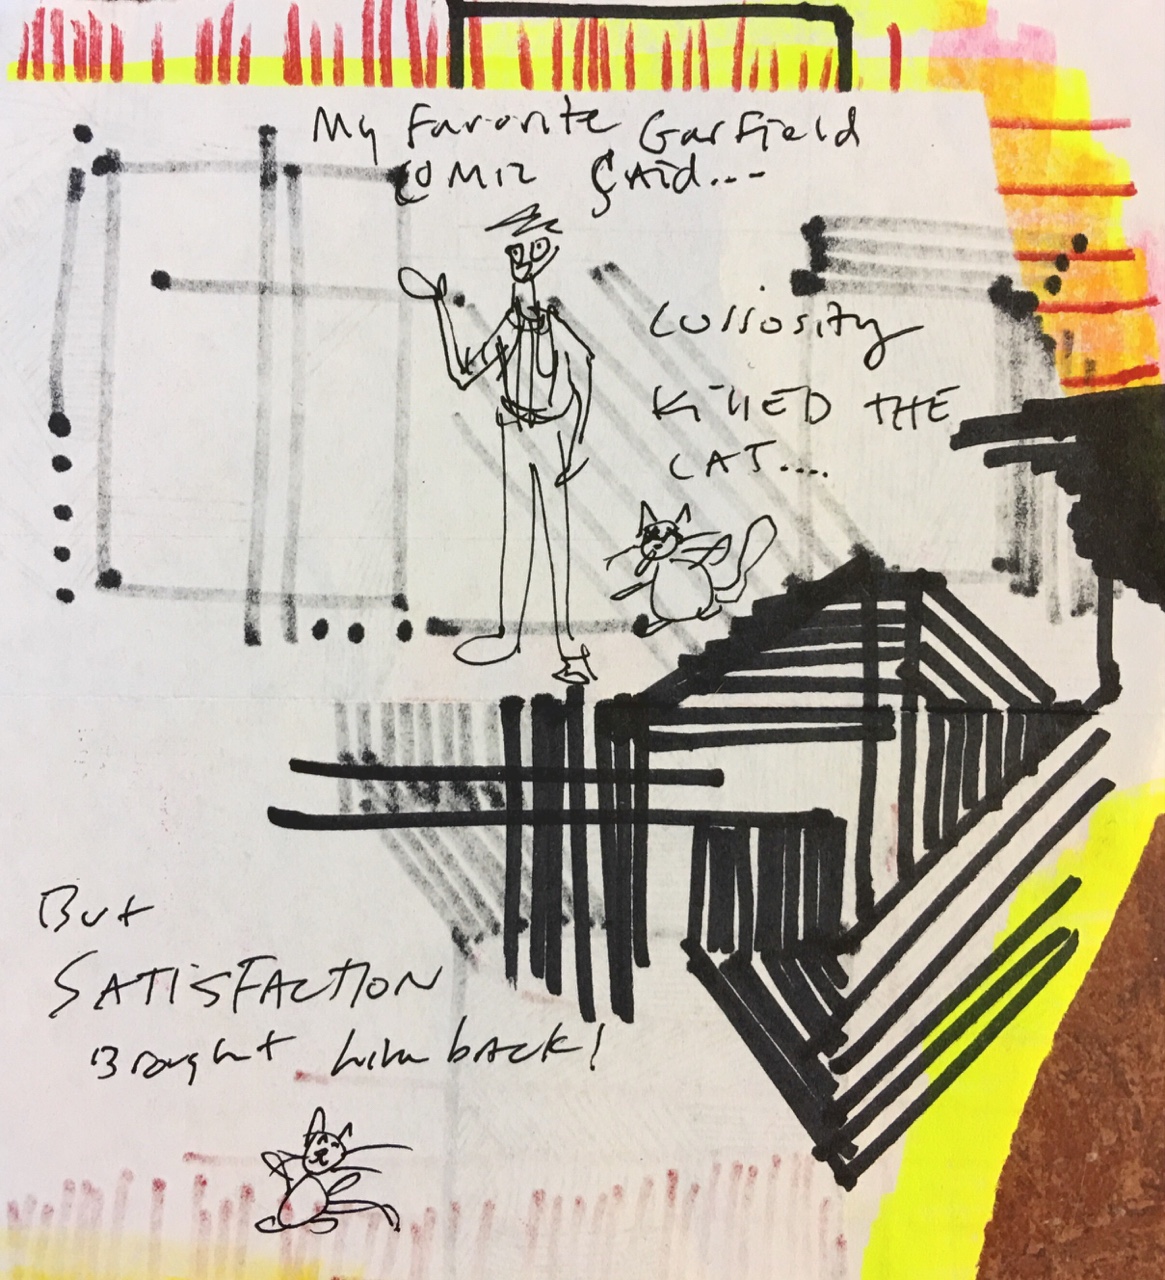 My Favorite Garfield
COMIZ SAid...
CUriosity
KillED THE
CAT....
But
SATiSFACTION
Brought him back!